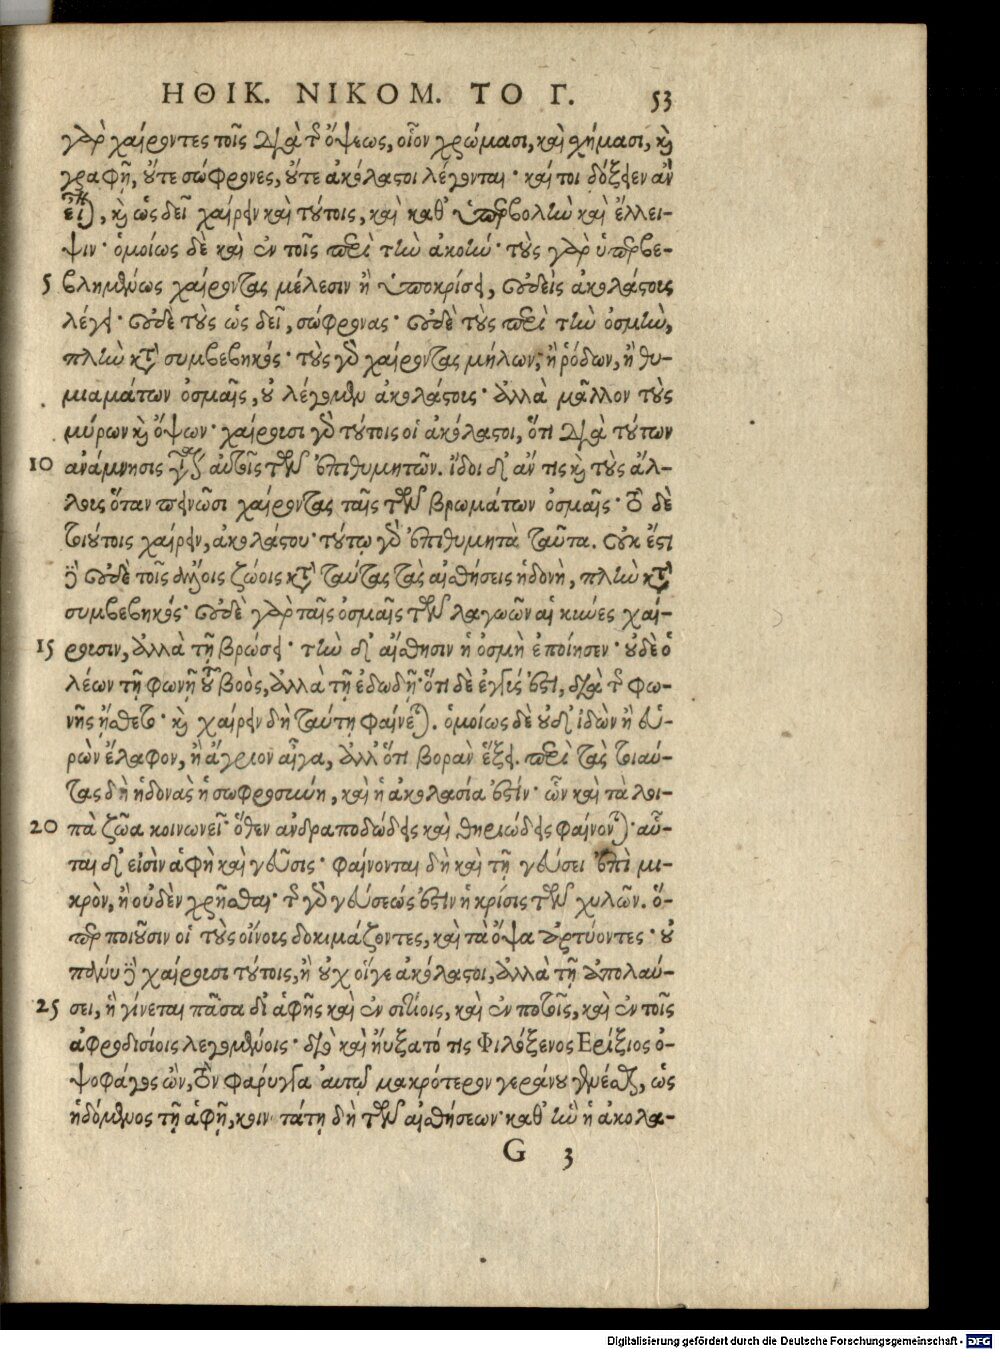 ΗΘΙΚ. ΝΙΚΟΜ. ΤΟ Γ. 53
γὰρ χαίροντες τοῖς διὰ τῆς ὄψεως, οἷον χρώμασι, καὶ σχήμασι, καὶ
γραφῇ, οὔτε σώφρονες, οὔτε ἀκόλαστοι λέγονται· καί τοι δόξειεν ἂν
εἶναι, καὶ ὡς δεῖ χαίρειν καὶ τούτοις, καὶ καθ' ὑπερβολὴν καὶ ἔλλει-
ψιν· ὁμοίως δὲ καὶ ἐν τοῖς περὶ τὴν ἀκοήν· τοὺς γὰρ ὑπερβε-
5 βλημένως χαίροντας μέλεσιν ἢ ὑποκρίσει, οὐδεὶς ἀκολάστους
λέγει· οὐδὲ τοὺς ὡς δεῖ, σώφρονας· οὐδὲ τοὺς περὶ τὴν ὀσμὴν,
πλὴν κατὰ συμβεβηκός· τοὺς γὰρ χαίροντας μήλων, ἢ ῥόδων, ἢ θυ-
μιαμάτων ὀσμαῖς, οὐ λέγομεν ἀκολάστους· ἀλλὰ μᾶλλον τοὺς
μύρων καὶ ὄψων· χαίρουσι γὰρ τούτοις οἱ ἀκόλαστοι, ὅτι διὰ τούτων
10 ἀνάμνησις γίνεται αὐτοῖς τῶν ἐπιθυμητῶν. ἴδοι δ' ἄν τις καὶ τοὺς ἄλ-
λους ὅταν πεινῶσι χαίροντας ταῖς τῶν βρωμάτων ὀσμαῖς· τὸ δὲ
τοιούτοις χαίρειν, ἀκολάστου· τούτῳ γὰρ ἐπιθυμητὰ ταῦτα. Οὐκ ἔστι
δὲ οὐδὲ τοῖς ἄλλοις ζώοις κατὰ ταύτας τὰς αἰσθήσεις ἡδονὴ, πλὴν κατὰ
συμβεβηκός· Οὐδὲ γὰρ ταῖς ὀσμαῖς τῶν λαγωῶν αἱ κύνες χαί-
15 ρουσιν, ἀλλὰ τῇ βρώσει· τὴν δ' αἴσθησιν ἡ ὀσμὴ ἐποίησεν· οὐδὲ ὁ
λέων τῇ φωνῇ τοῦ βοὸς, ἀλλὰ τῇ ἐδωδῇ· ὅτι δὲ ἐγγύς ἐστι, διὰ τῆς φω-
νῆς ᾔσθετο· καὶ χαίρειν δὴ ταύτῃ φαίνεται. ὁμοίως δὲ οὐδ' ἰδὼν ἢ εὑ-
ρὼν ἔλαφον, ἢ ἄγριον αἶγα, ἀλλ' ὅτι βορὰν ἕξει. περὶ τὰς τοιαύ-
τας δὴ ἡδονὰς ἡ σωφροσύνη, καὶ ἡ ἀκολασία ἐστίν· ὧν καὶ τὰ λοι-
20 πὰ ζῶα κοινωνεῖ· ὅθεν ἀνδραποδώδεις καὶ θηριώδεις φαίνονται· αὗ-
ται δ' εἰσὶν ἁφὴ καὶ γεῦσις· φαίνονται δὴ καὶ τῇ γεύσει ἐπὶ μι-
κρὸν, ἢ οὐδὲν χρῆσθαι· τῆς γὰρ γεύσεώς ἐστιν ἡ κρίσις τῶν χυλῶν. ὅ-
περ ποιοῦσιν οἱ τοὺς οἴνους δοκιμάζοντες, καὶ τὰ ὄψα ἀρτύοντες· οὐ
πάνυ δὲ χαίρουσι τούτοις, ἢ οὐχ οἵγε ἀκόλαστοι, ἀλλὰ τῇ ἀπολαύ-
25 σει, ἣ γίνεται πᾶσα δι' ἁφῆς καὶ ἐν σιτίοις, καὶ ἐν ποτοῖς, καὶ ἐν τοῖς
ἀφροδισίοις λεγομένοις· διὸ καὶ ηὔξατό τις Φιλόξενος Ερίξιος ὀ-
ψοφάγος ὢν, τὸν φάρυγγα αὐτῷ μακρότερον γεράνου γενέσθαι, ὡς
ἡδόμενος τῇ ἁφῇ, κοινοτάτη δὴ τῶν αἰσθήσεων· καθ' ἣν ἡ ἀκολα-
G 3
Digitalisierung gefördert durch die Deutsche Forschungsgemeinschaft - DFG